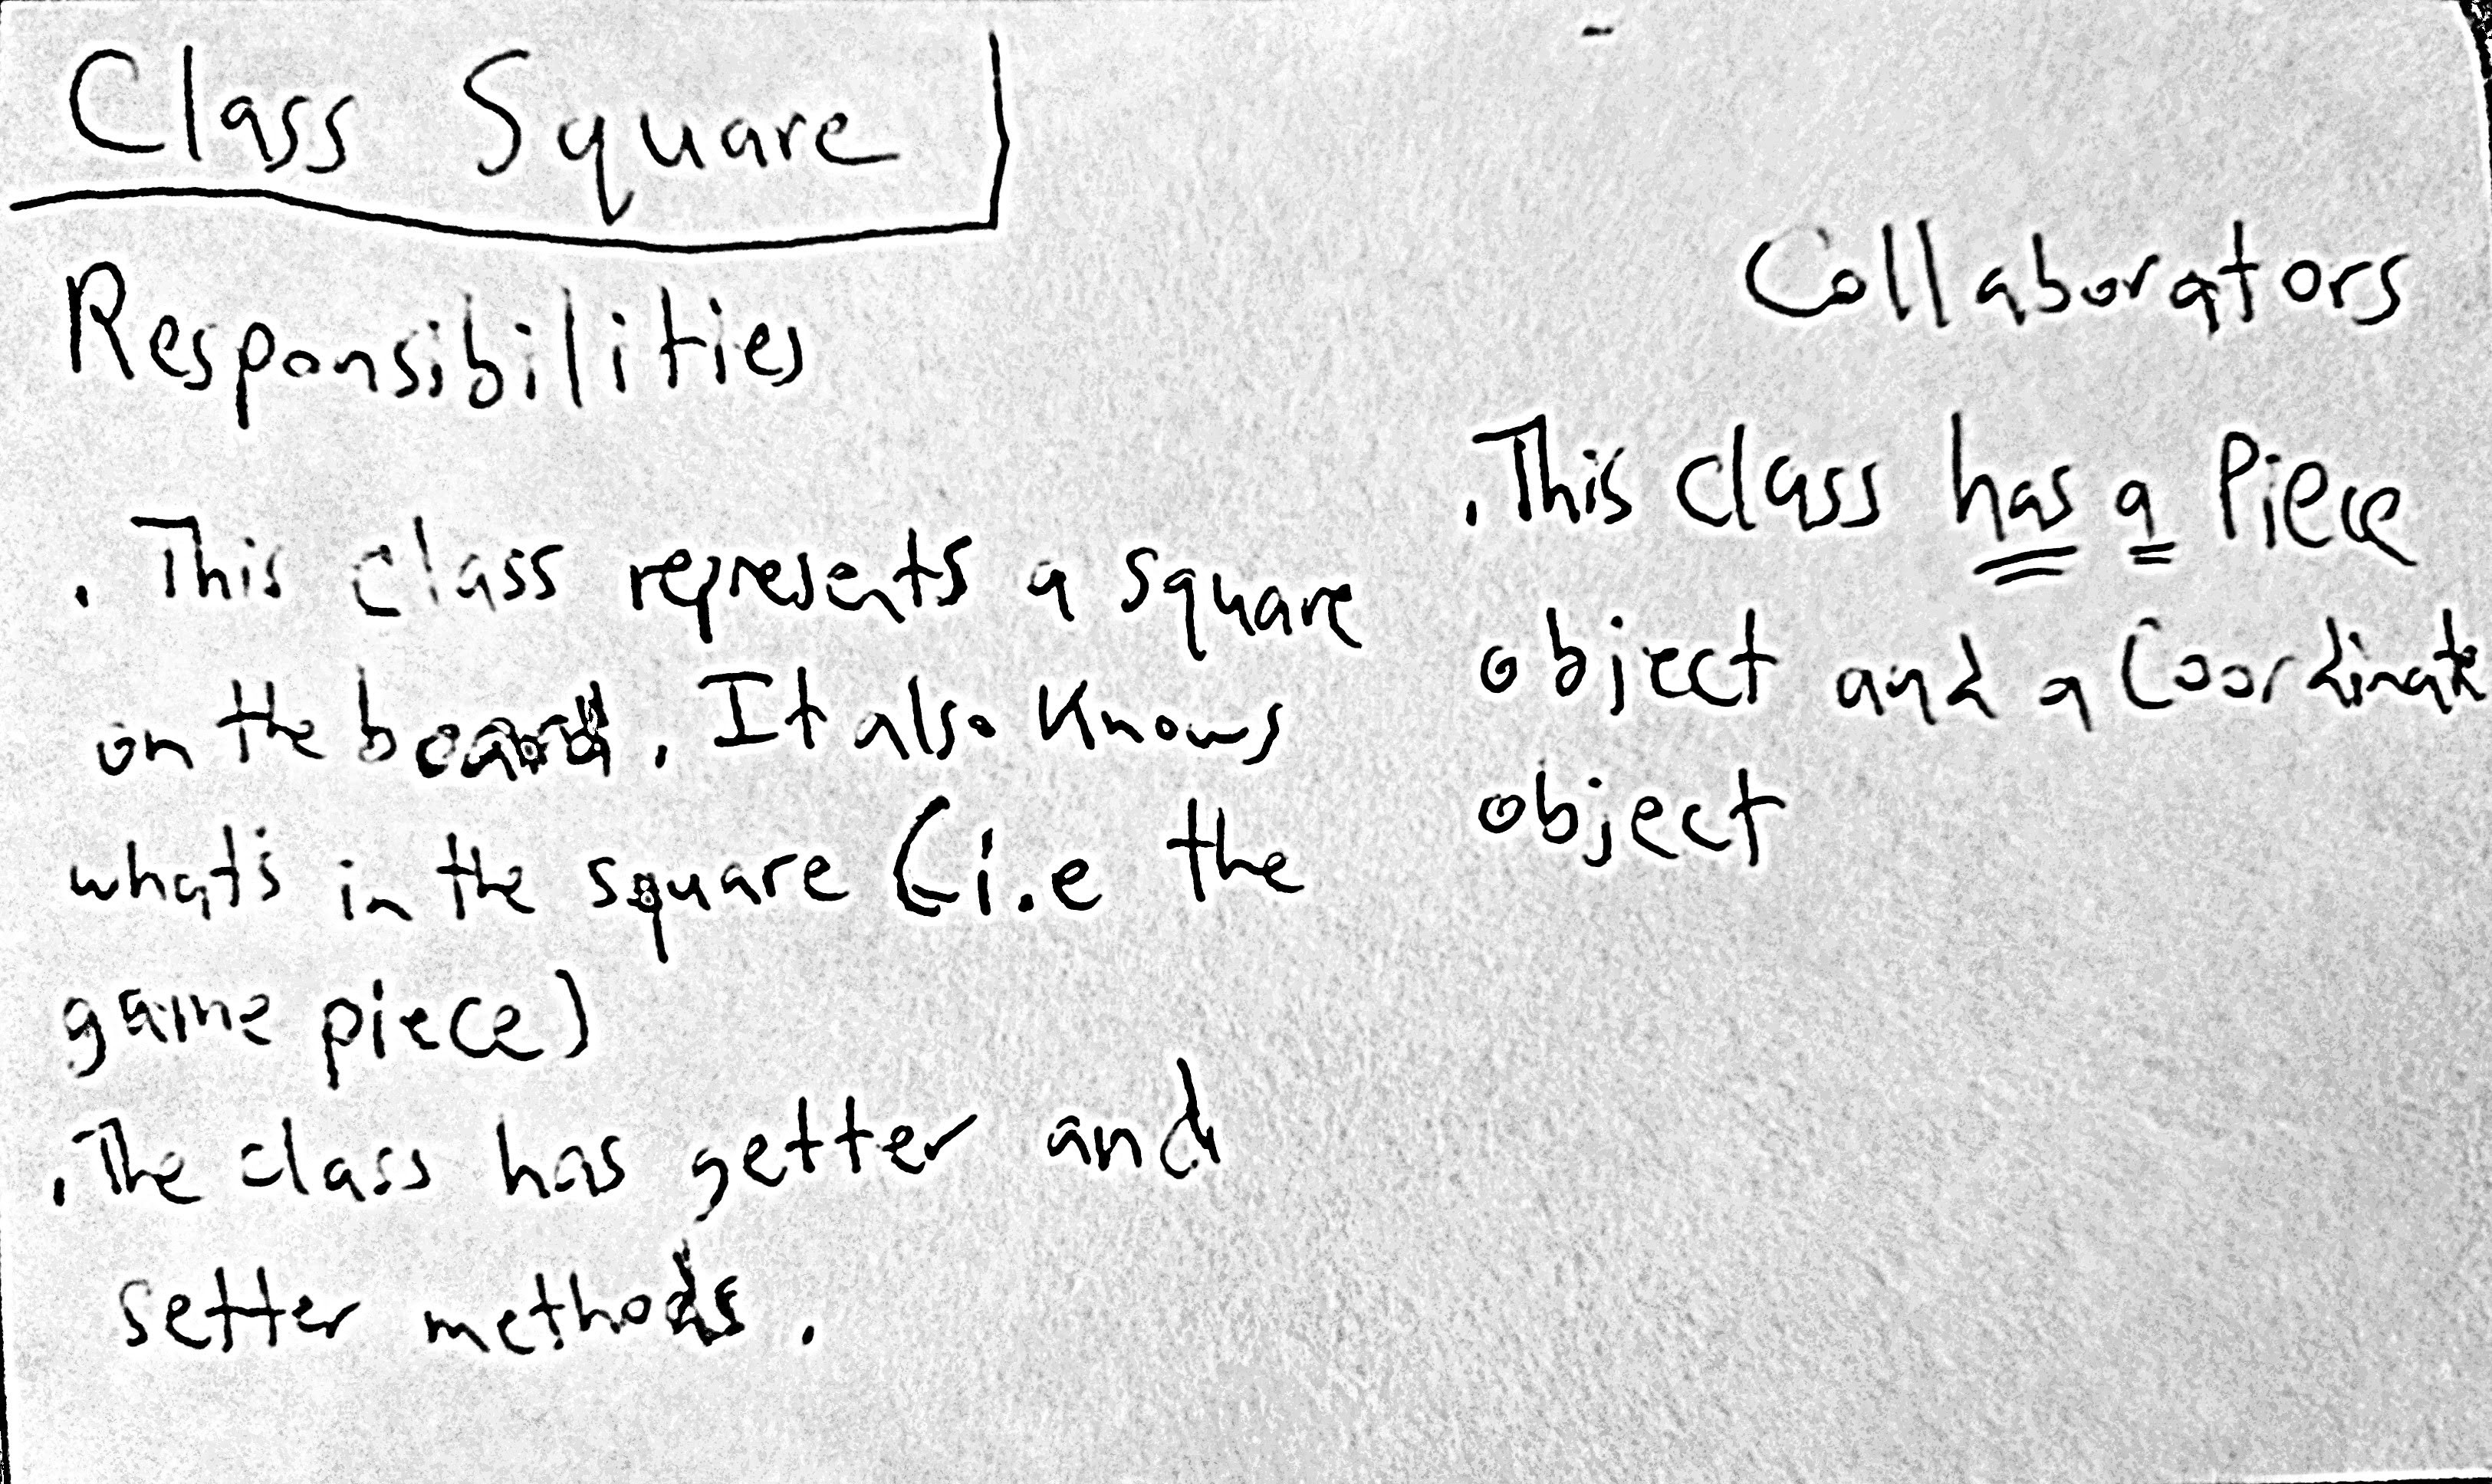 Class Square
Responsibilities
. This class represents a square
on the board. It also knows
what's in the square (i.e the
game piece)
. The class has getter and
setter methods.
Collaborators
. This class has a Piece
object and a Coordinate
object